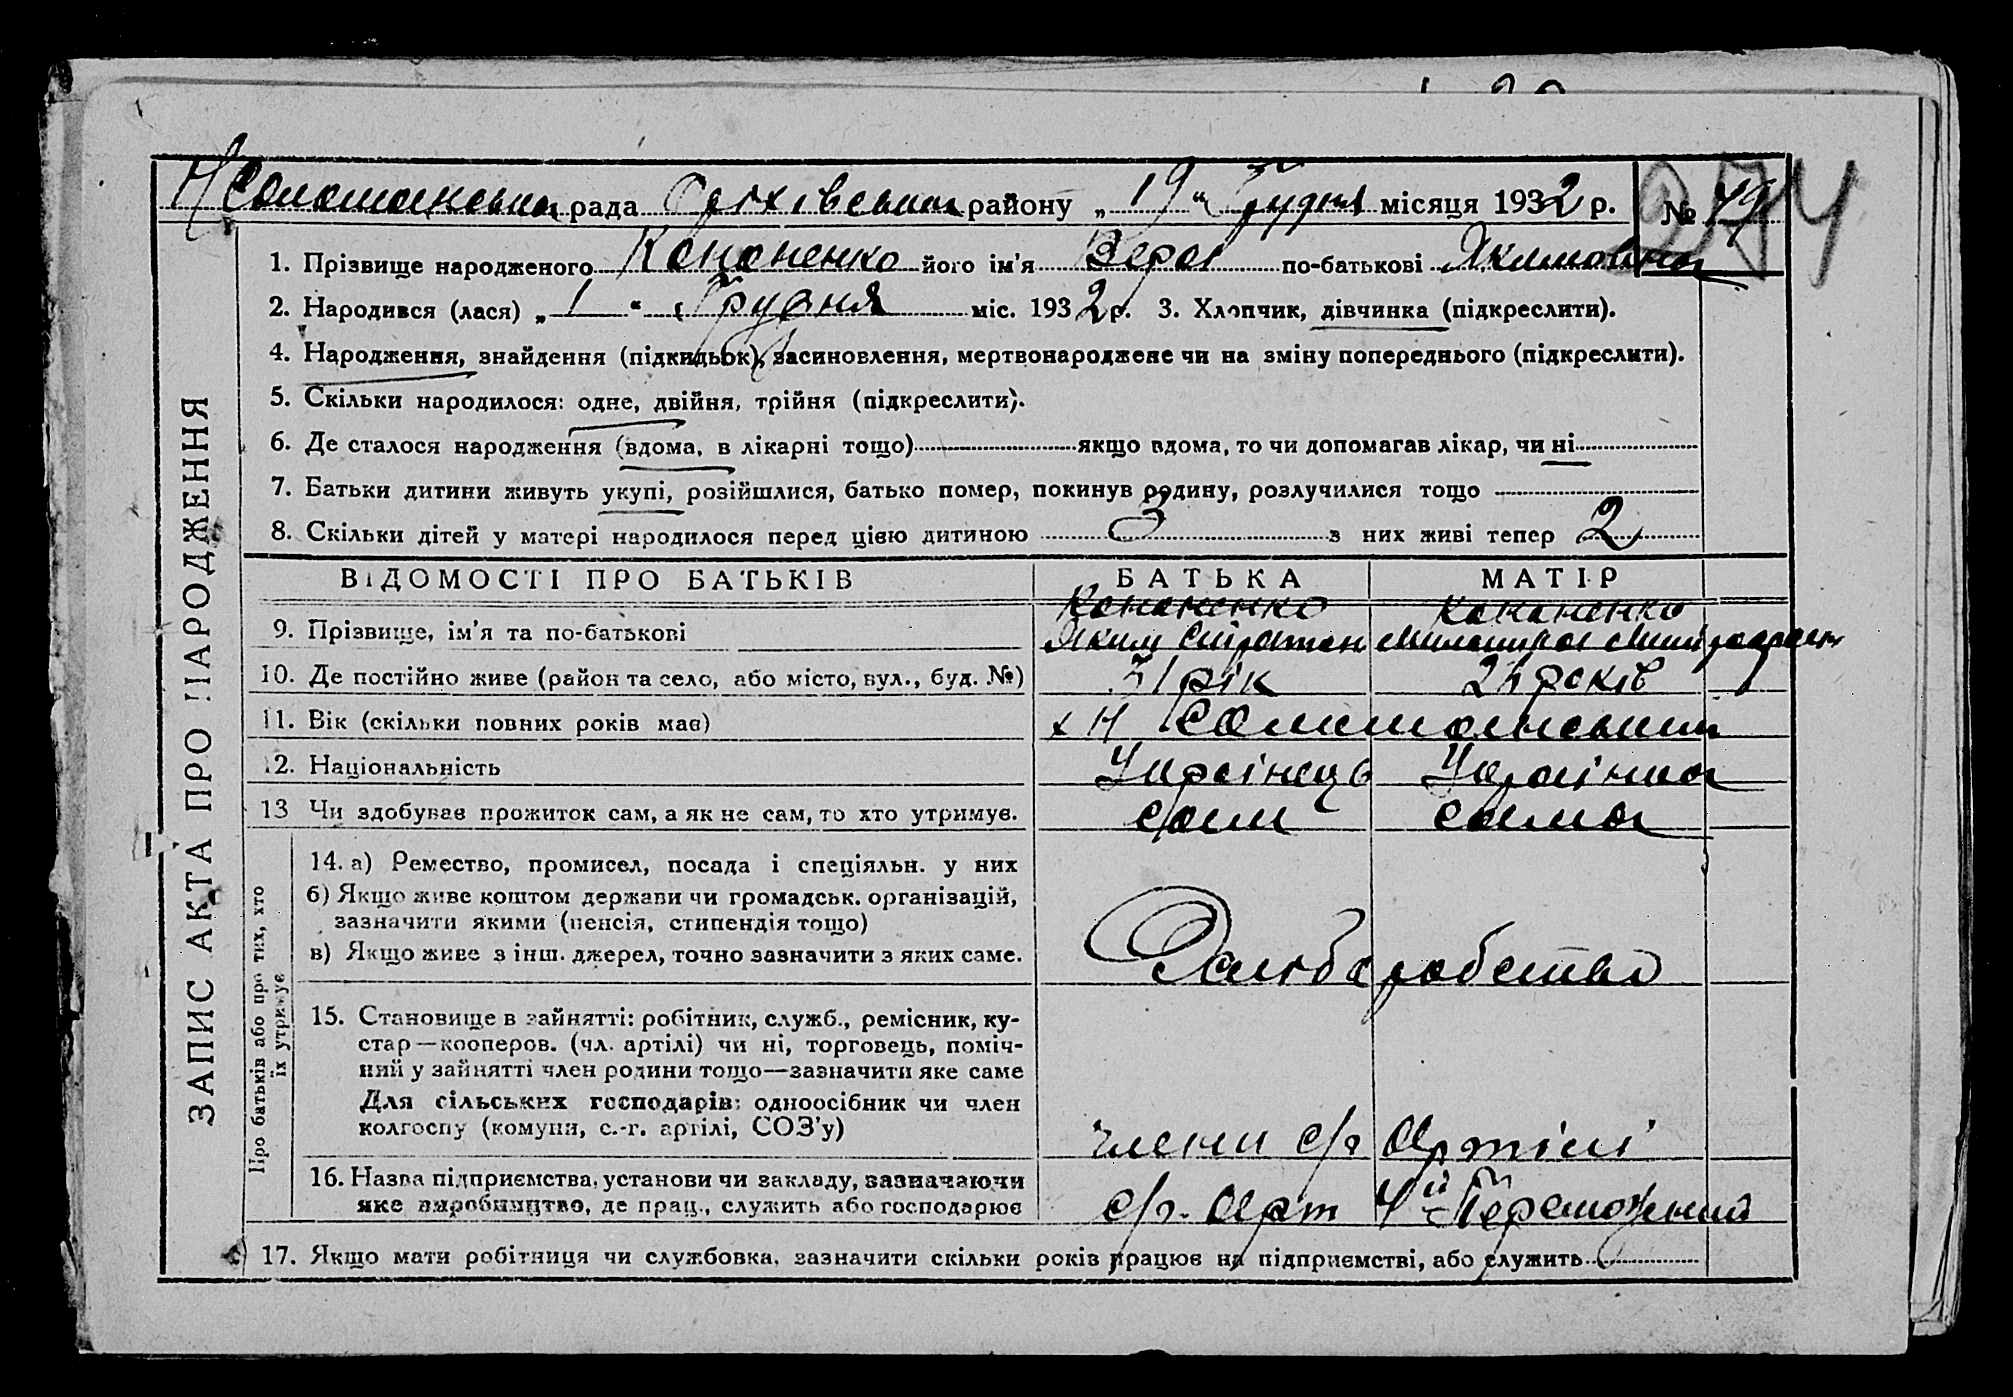 рада Оріхівського району „ 19 “ Грудня місяця 1932 р. № 274
1. Прізвище народженого Кононенко його ім'я Вера по-батькові Якимовна
2. Народився (лася) „ 1 “ Грудня міс. 1932 р. 3. Хлопчик, дівчинка (підкреслити).
4. Народження, знайдення (підкидьок), засиновлення, мертвонароджене чи на зміну попереднього (підкреслити).
5. Скільки народилося: одне, двійня, трійня (підкреслити).
6. Де сталося народження (вдома, в лікарні тощо) якщо вдома, то чи допомагав лікар, чи ні
7. Батьки дитини живуть укупі, розійшлися, батько помер, покинув родину, розлучилися тощо
8. Скільки дітей у матері народилося перед цією дитиною 3 з них живі тепер 2
ЗАПИС АКТА ПРО НАРОДЖЕННЯ
ВІДОМОСТІ ПРО БАТЬКІВ БАТЬКА МАТІР
Кононенко Кононенко
9. Прізвище, ім'я та по-батькові Яким
10. Де постійно живе (район та село, або місто, вул., буд. №) 31 рік років
11. Вік (скільки повних років має) х Н
12. Національність Українець Українка
13 Чи здобуває прожиток сам, а як не сам, то хто утримує. сам сама
Про батьків або про тих, хто
їх утримує
14. а) Ремество, промисел, посада і спеціяльн. у них
б) Якщо живе коштом держави чи громадськ. організацій,
зазначити якими (пенсія, стипендія тощо)
в) Якщо живе з інш. джерел, точно зазначити з яких саме. Хлібаробство
15. Становище в зайнятті: робітник, служб., ремісник, ку-
стар—кооперов. (чл. артілі) чи ні, торговець, поміч-
ний у зайнятті член родини тощо—зазначити яке саме
Для сільських господарів: одноосібник чи член
колгоспу (комуни, с.-г. артілі, СОЗ'у) члени с/г Артілі
16. Назва підприємства, установи чи закладу, зазначаючи
яке виробництво, де прац., служить або господарює с/г. Арт Переможний
17. Якщо мати робітниця чи службовка, зазначити скільки років працює на підприємстві, або служить